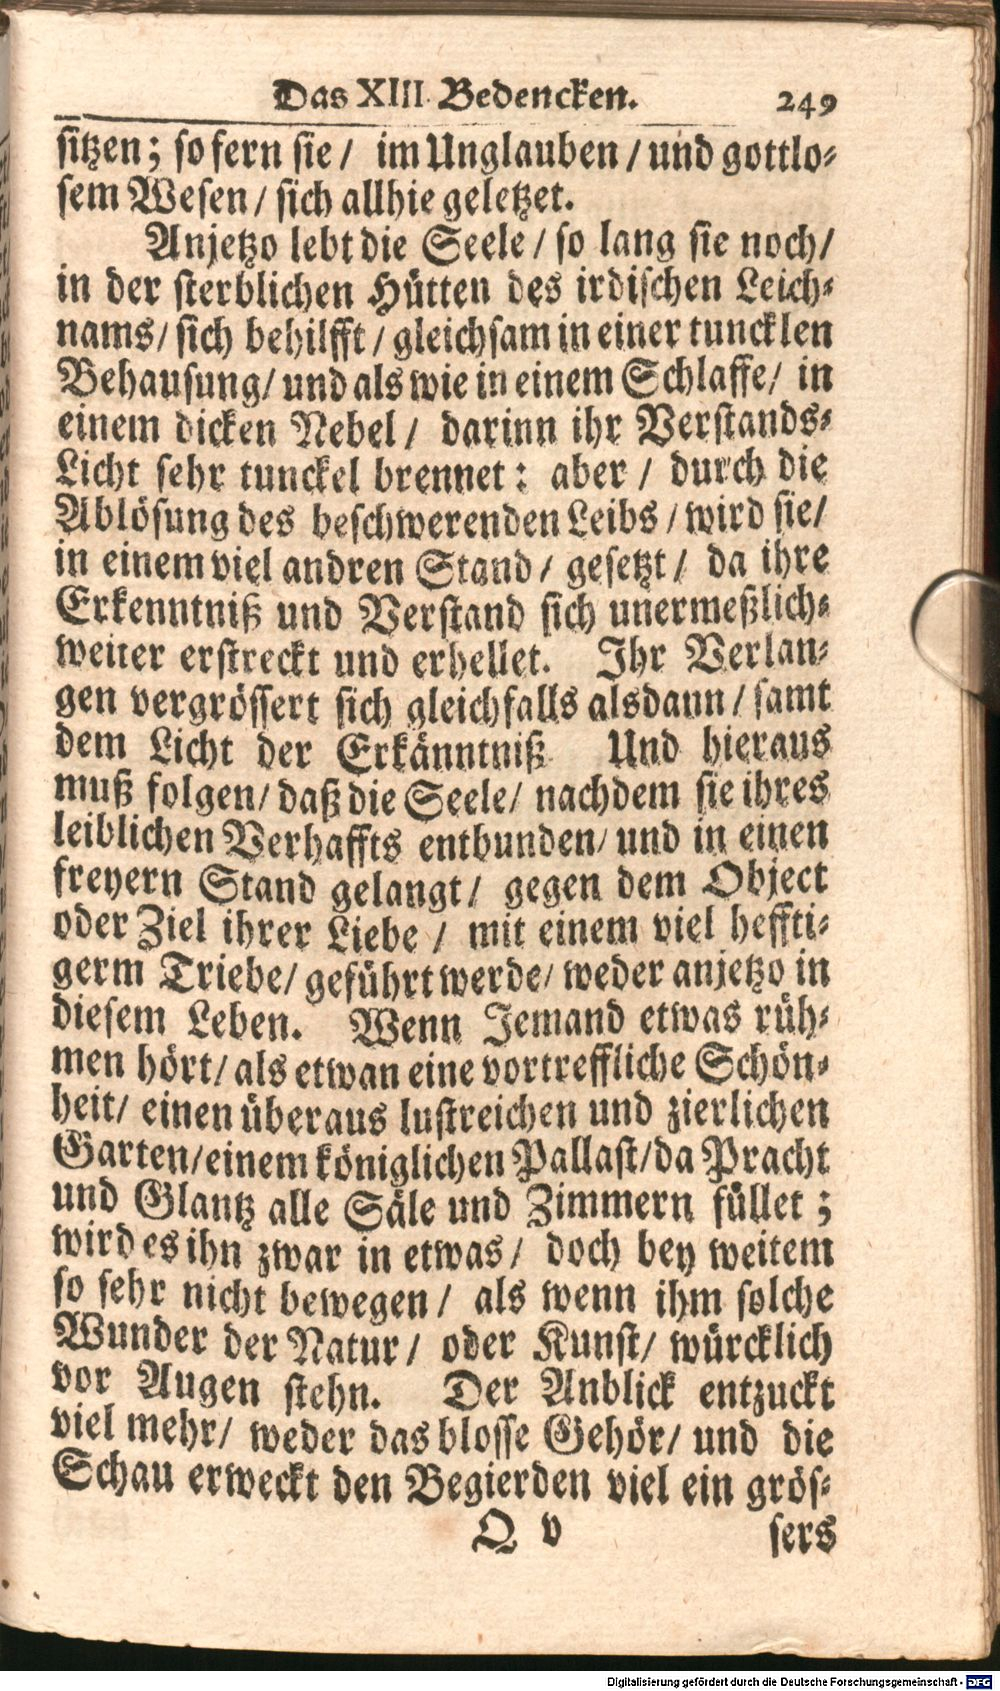 Das XIII. Bedencken. 249
sitzen; so fern sie / im Unglauben / und gottlo-
sem Wesen / sich allhie geletzet.
Anjetzo lebt die Seele / so lang sie noch /
in der sterblichen Hütten des irdischen Leich-
nams / sich behilfft / gleichsam in einer tuncklen
Behausung / und als wie in einem Schlaffe / in
einem dicken Nebel / darinn ihr Verstands-
Licht sehr tunckel brennet: aber / durch die
Ablösung des beschwerenden Leibs / wird sie /
in einem viel andren Stand / gesetzt / da ihre
Erkenntniß und Verstand sich unermeßlich-
weiter erstreckt und erhellet. Ihr Verlan-
gen vergrössert sich gleichfalls alsdann / samt
dem Licht der Erkänntniß Und hieraus
muß folgen / daß die Seele / nachdem sie ihres
leiblichen Verhaffts entbunden / und in einen
freyern Stand gelangt / gegen dem Object
oder Ziel ihrer Liebe / mit einem viel heffti-
germ Triebe / geführt werde / weder anjetzo in
diesem Leben. Wenn Jemand etwas rüh-
men hört / als etwan eine vortreffliche Schön-
heit / einen überaus lustreichen und zierlichen
Garten / einem königlichen Pallast / da Pracht
und Glantz alle Säle und Zimmern füllet;
wird es ihn zwar in etwas / doch bey weitem
so sehr nicht bewegen / als wenn ihm solche
Wunder der Natur / oder Kunst / würcklich
vor Augen stehn. Der Anblick entzuckt
viel mehr / weder das blosse Gehör / und die
Schau erweckt den Begierden viel ein grös-
Q v sers
Digitalisierung gefördert durch die Deutsche Forschungsgemeinschaft - DFG